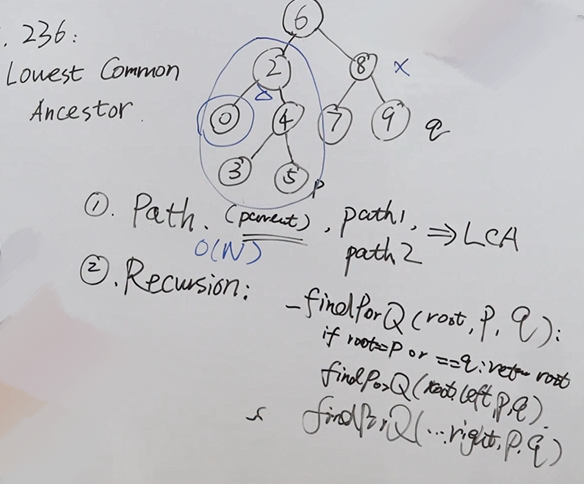 . 236:
Lowest Common
Ancestor.
6
2
8 x
0
4
7
9 q
3
5 p
①. Path. (parent), path1,
path2 ⇒ LCA
O(N)
②. Recursion:
- findPorQ(root, P, q):
if root=p or ==q: return root
findPorQ(root.left, p, q).
findPorQ(...right, P, q)